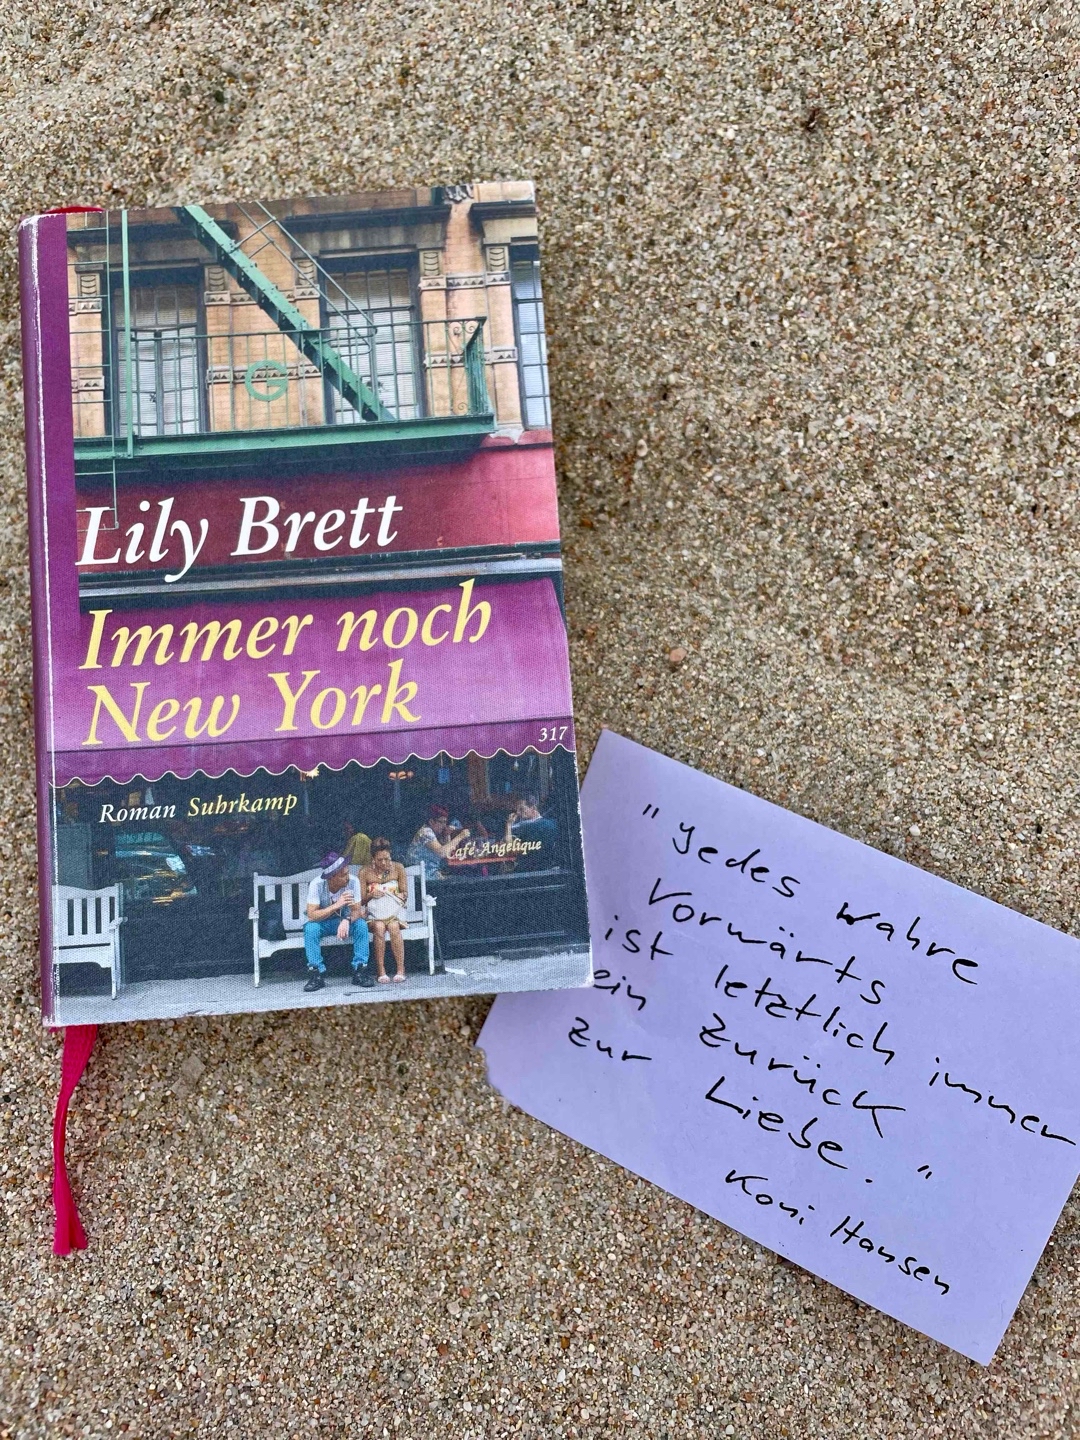 Lily Brett
Immer noch
New York
317
Roman Suhrkamp
Café Angelique
G
"Jedes wahre
Vorwärts
ist letztlich immer
ein Zurück
zur Liebe."
Koni Hansen